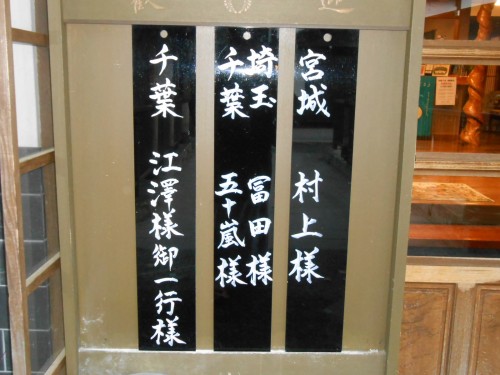 歓迎
宮城 村上様
埼玉 冨田様
千葉 五十嵐様
千葉 江澤様御一行様